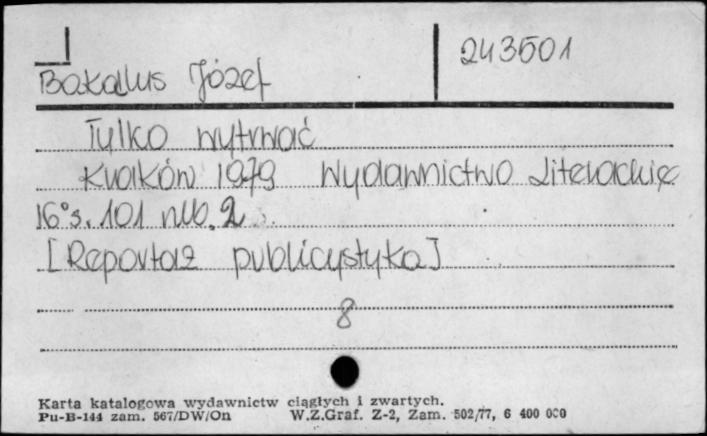 243501
Bakallus Józef
Tylko wytrwać
Kraków 1979 Wydawnictwo Literackie
16°s. 101 nlb. 2
[Reportaż publicystyka]
8
Karta katalogowa wydawnictw ciągłych i zwartych.
Pu-B-144 zam. 567/DW/On W.Z.Graf. Z-2, Zam. 502/77, 6 400 000